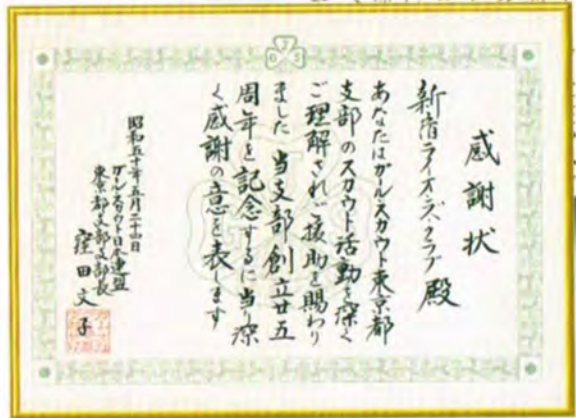 感謝状
新宿ライオンズクラブ殿
あなたはガールスカウト東京都
支部のスカウト活動を深く
ご理解されご援助を賜わり
ました 当支部創立廿五
周年を記念するに当り深
く感謝の意を表します
昭和五十年五月二十四日
ガールスカウト日本連盟
東京都支部支部長
窪田文子